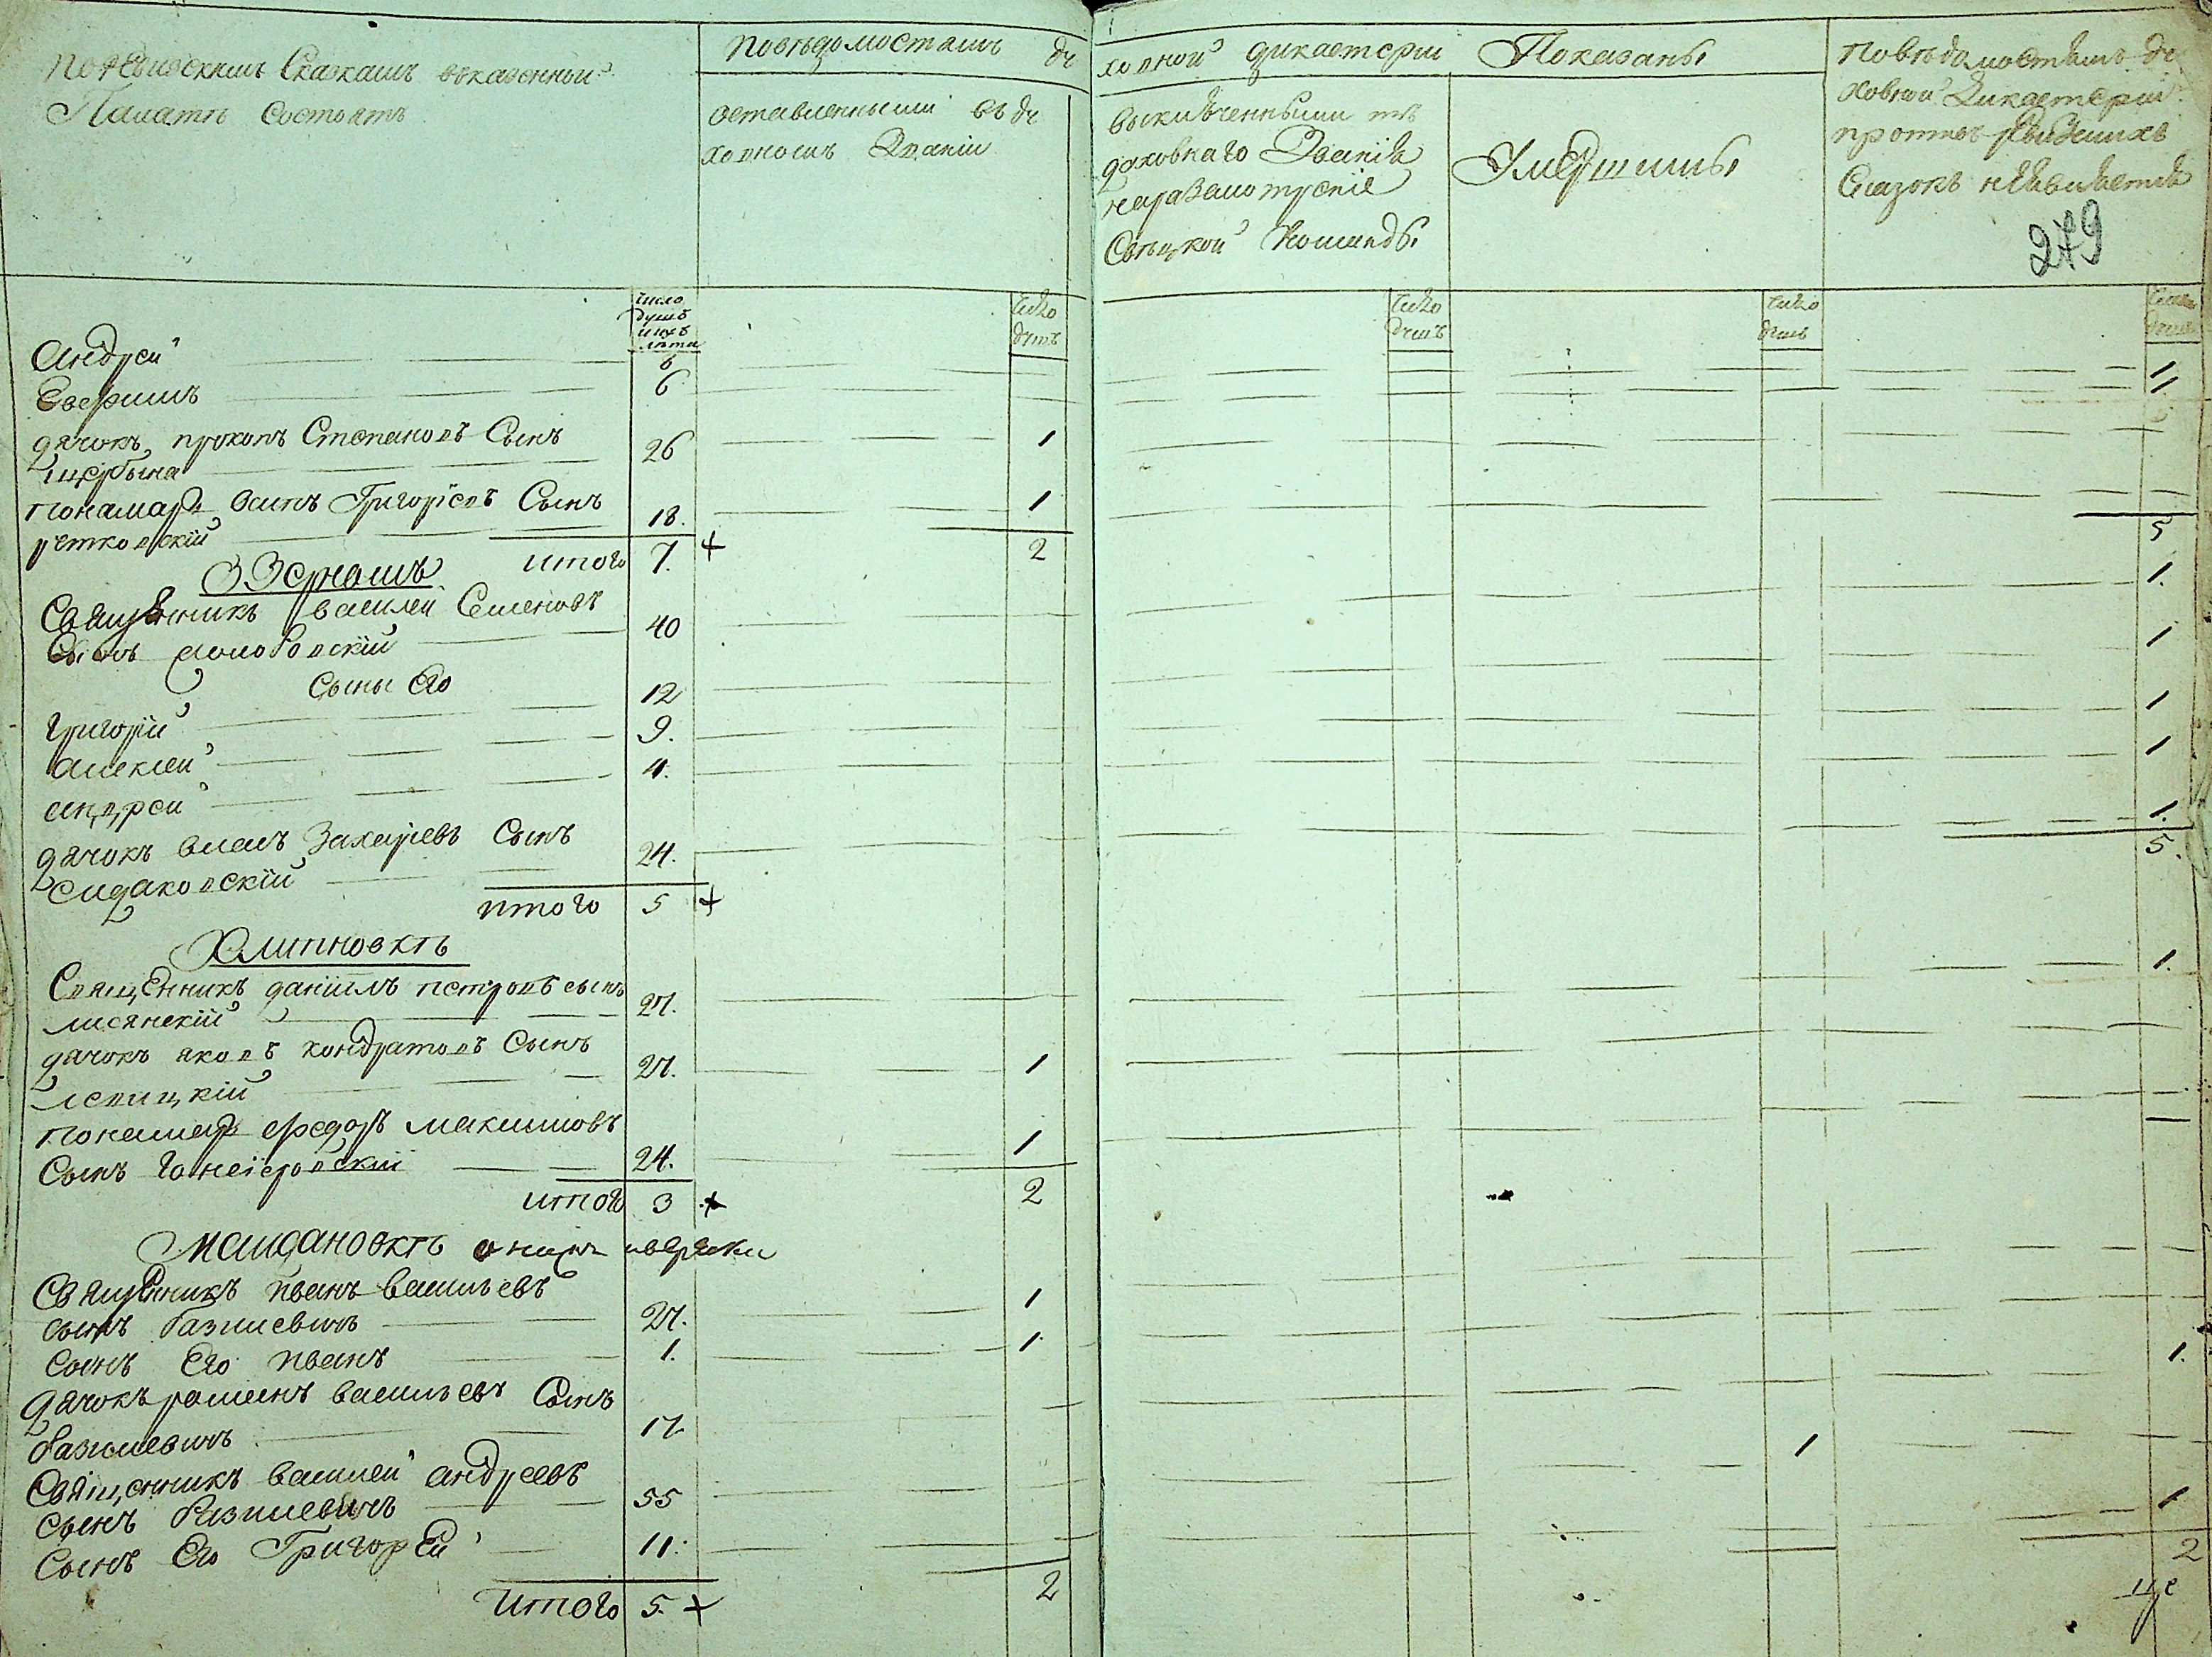 По ревизскимъ Сказкамъ вказенной
Палатѣ Состоятъ
Повѣдомостямъ ду
оставленными въ ду
ховномъ Званіи
ховной дикастеріи Показаны
выключенными изъ
духовнаго Званія
на разсмотреніе
Свѣцкой Команды
Умершими
Повѣдомостямъ ду
ховной Дикастеріи
противъ ревизскихъ
Сказокъ неявилается
279
число
душъ
ихъ
лѣта
число
душъ
число
душъ
число
душъ
число
душъ
Андрей 6 1.
Евфимъ 6 1.
дячокъ прокопъ Степановъ Сынъ
щербына 26 1
понамарь осипъ Григоріевъ Сынъ
18. 1
итого 7. + 2 5
Зернамъ
Священникъ василей Семеновъ 1.
Сынъ 40
Сыны Его 1
Григорій 12 1
алексей 9. 1
андрей 4.
дячокъ власъ Захаревъ Сынъ 1.
Сидаковскій 24. 5.
итого 5 +
Хлипновкѣ
Священникъ даніилъ петровъ сынъ 1.
лисянскій 27.
дячокъ яковъ кондратовъ Сынъ
левицкій 27. 1
понамарь федоръ максимовъ
Сынъ 24. 1
итого 3 + 2
Майдановкѣ
Священникъ иванъ васильевъ
сынъ базилевичъ 27. 1
Сынъ Его иванъ 1. 1.
дячокъ романъ васильевъ Сынъ 1.
базилевичъ 17
Священникъ василей андреевъ 1
сынъ базилевичъ 55
Сынъ Его Григорей 11. 1
итого 5. + 2 2